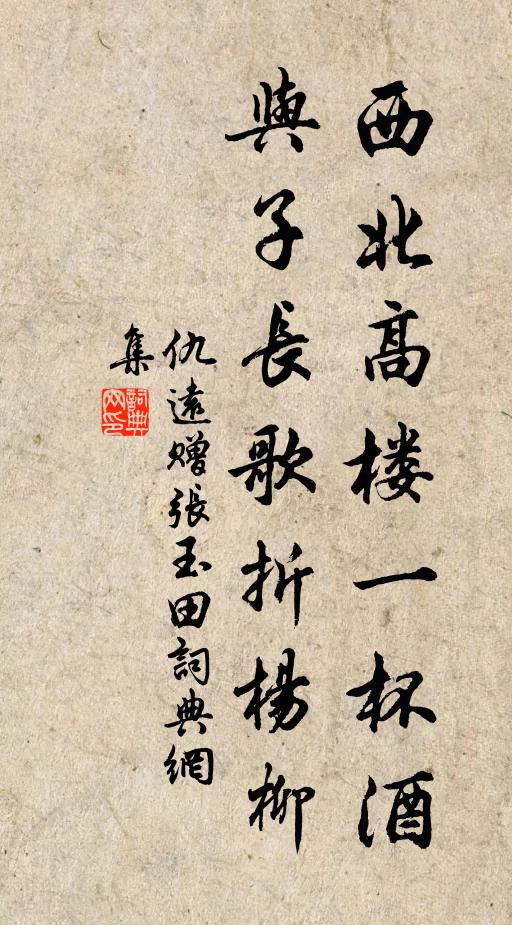 西北高楼一杯酒
與子長歌折楊柳
仇遠贈張玉田詞典網
集
詞典
网印